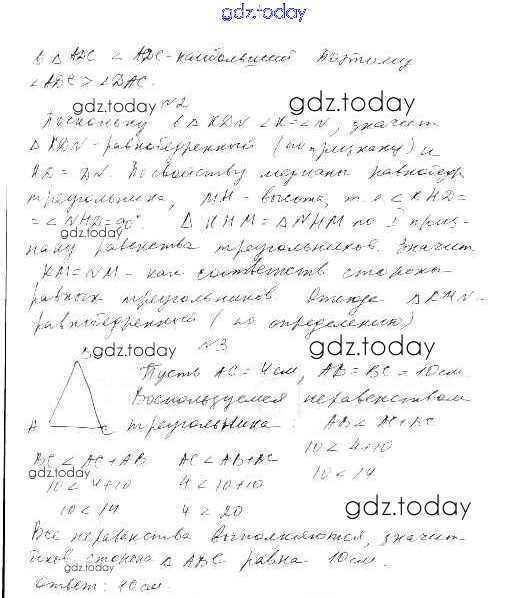 gdz.today
в △ ADC ∠ ADC - наибольший Поэтому
∠ADC > ∠DAC.
gdz.today №2 gdz.today
Поскольку в △ KDN ∠K = ∠N, значит
△ KDN - равнобедренный (по признаку) и
KD = DN. По свойству медианы равнобедр
треугольника, MH - высота, т. е ∠KHD =
= ∠NHD = 90°. △ KHM = △ NHM по I приз-
gdz.today
наку равенства треугольников. Значит
KM = NM - как соответств. стороны
равных треугольников Отсюда △ KMN -
равнобедренный (по определению)
№3 gdz.today
Пусть AC = 4 см, AB = BC = 10 см.
Воспользуемся неравенством
A C треугольника: AB < AC + BC
BC < AC + AB AC < AB + BC 10 < 4 + 10
10 < 4 + 10 4 < 10 + 10 10 < 14
10 < 14 4 < 20 gdz.today
Все неравенства выполняются, значит
боков. сторона △ ABC равна 10 см.
gdz.today
Ответ: 10 см.